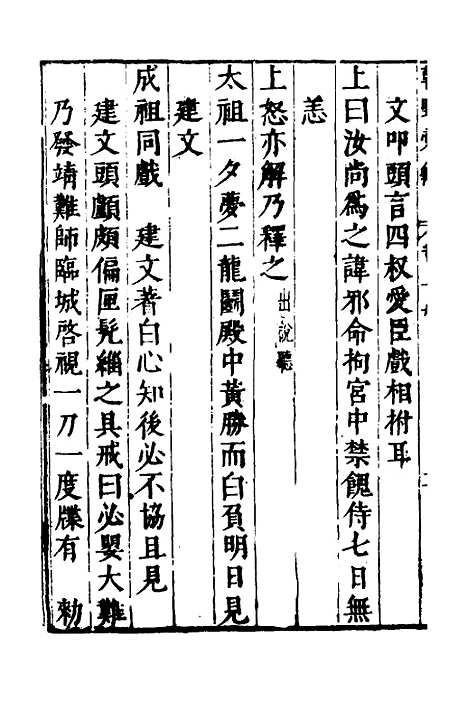 文叩頭言四叔愛臣戲相拊耳
上曰汝尚為之諱邪命拘宮中禁餽侍七日無
恙
上怒亦解乃釋之 出說聽
太祖一夕夢二龍鬭殿中黃勝而白負明日見
建文
成祖同戲 建文著白心知後必不協且見
建文頭顱頗偏匣髡緇之具戒曰必嬰大難
乃發靖難師臨城啓視一刀一度牒有 勑